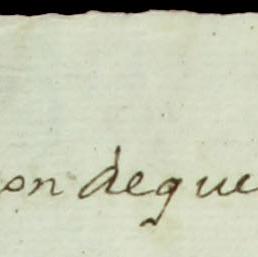 on deque